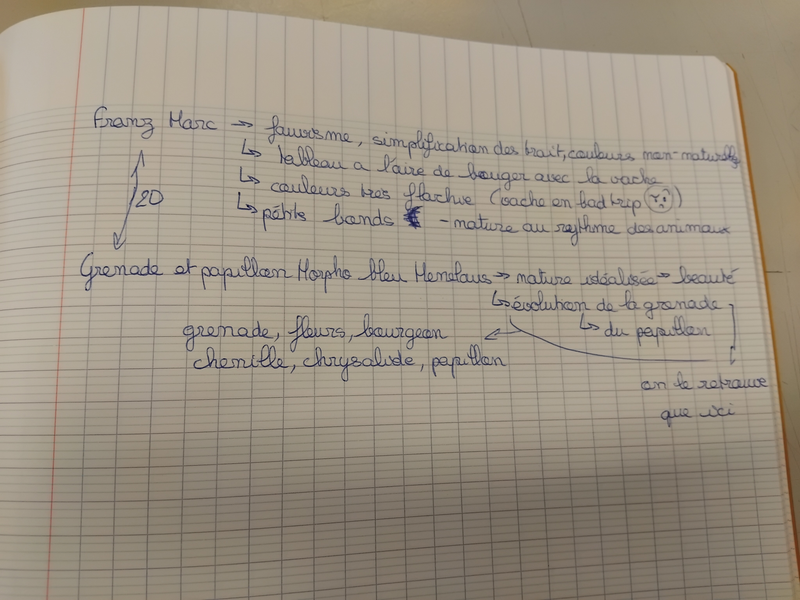 Franz Marc → fauvisme, simplification des trait, couleurs non-naturelles
↳ tableau a l'aire de bouger avec la vache
↳ couleurs tres flachue (vache en bad trip)
20
↳ petits bonds - nature au rythme des animaux
Grenade et papillon Morpho bleu Menelaus → nature idéalisée → beauté
↳ évolution de la grenade
↳ du papillon
grenade, fleurs, bourgeon
chenille, chrysalide, papillon
on le retrouve
que ici